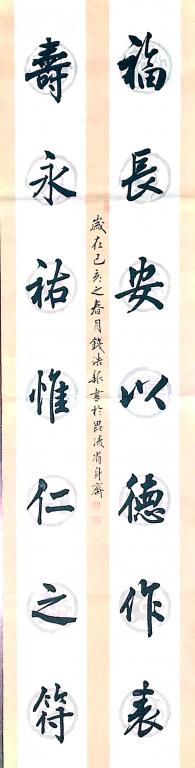 福長安以德作表
歲在己亥之春月錢書於毘陵省身齋
壽永祐惟仁之符